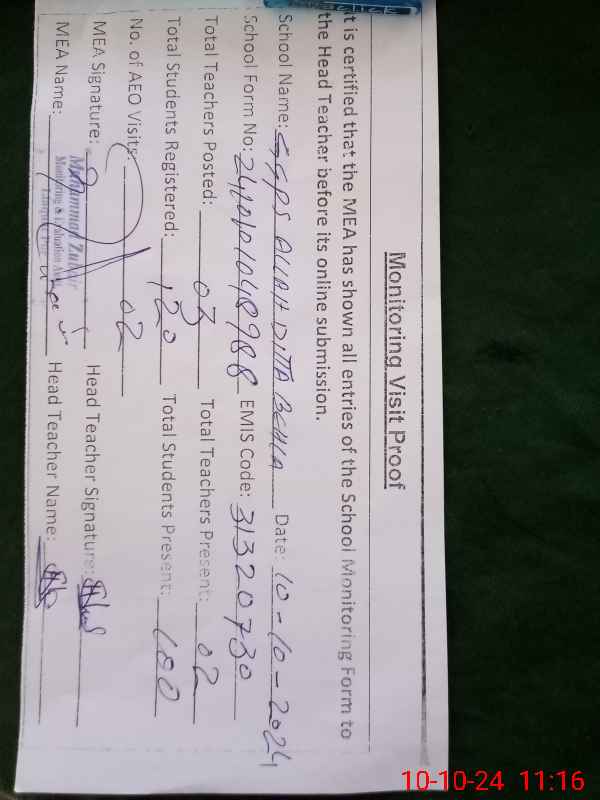 Monitoring Visit Proof
t is certified that the MEA has shown all entries of the School Monitoring Form to
the Head Teacher before its online submission.
School Name: GGPS ALLAH DITTA BEHLA Date: 10-10-2024
School Form No: EMIS Code: 31320730
Total Teachers Posted: 03 Total Teachers Present: 02
Total Students Registered: 120 Total Students Present: 100
No. of AEO Visits: 02
MEA Signature: Head Teacher Signature:
MEA Name: Head Teacher Name:
Muhammad Zubair
Monitoring & Evaluation
10-10-24 11:16